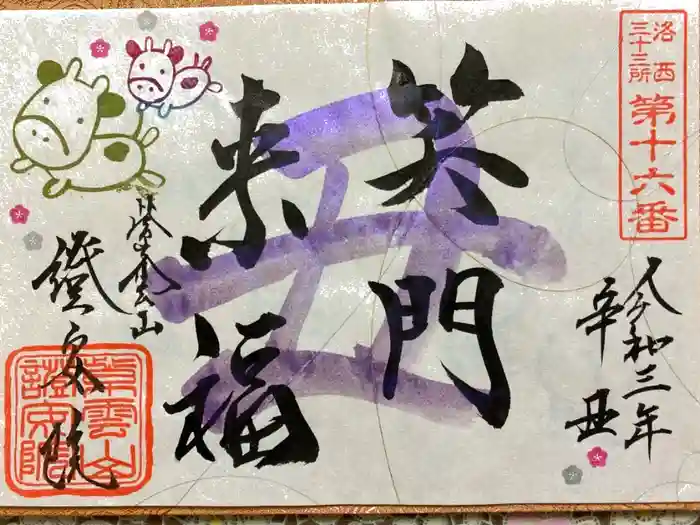 洛西
三十三所
第十六番
令和三年
辛丑
笑門
来福
丑
雲山
證安院
紫雲山
證安院